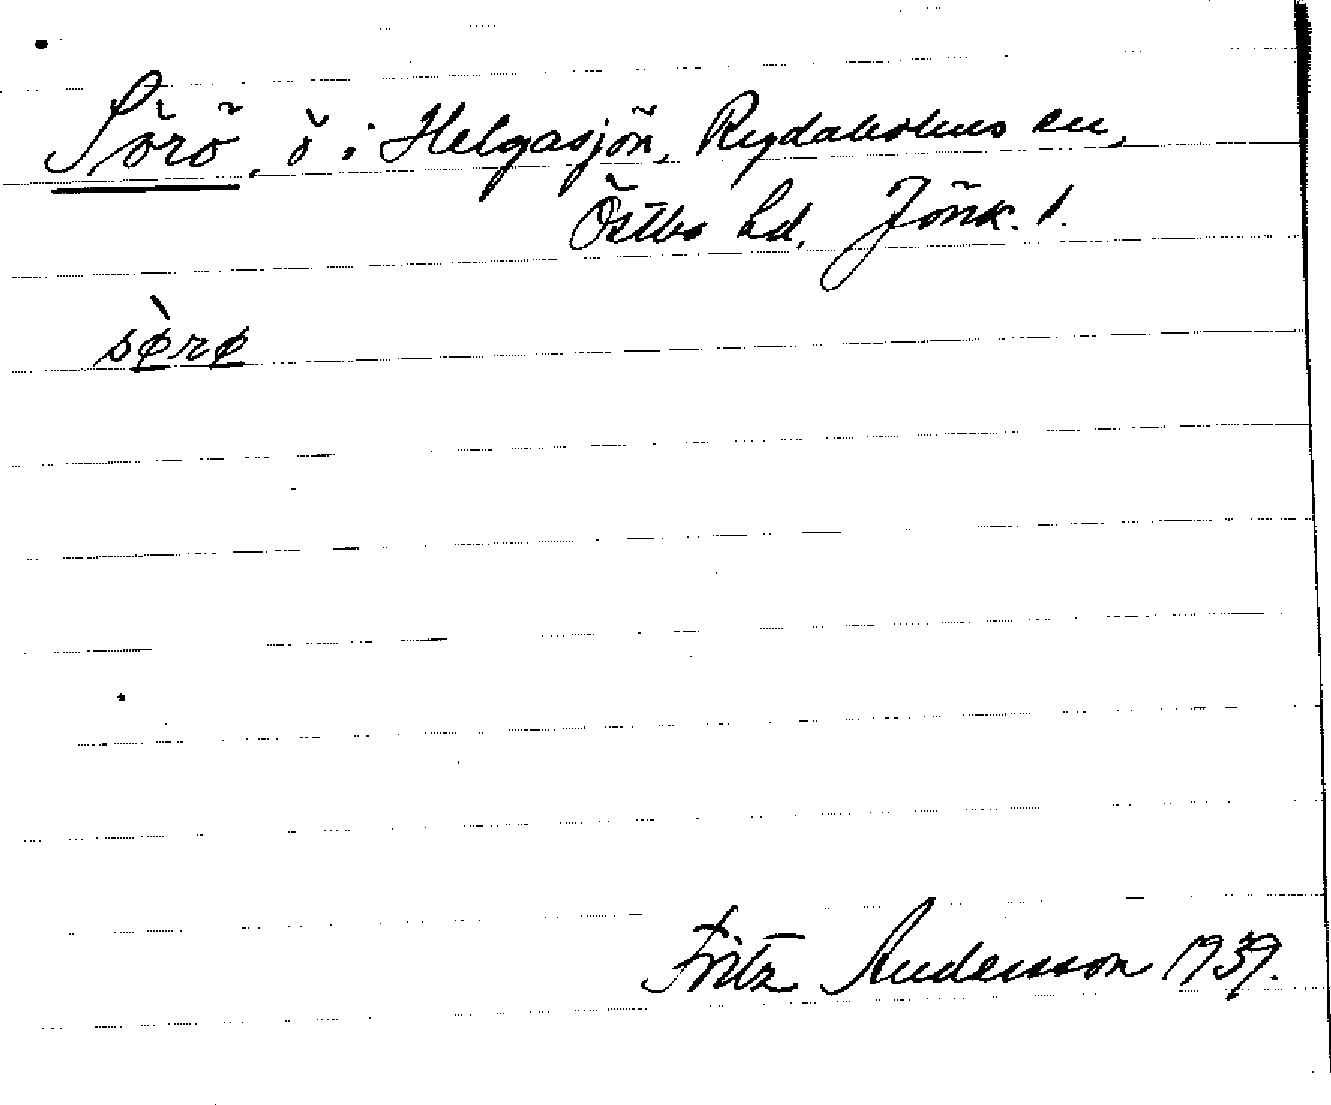 Sörö, ö i Helgasjön, Rydaholms sn,
Östbo hd, Jönk. l.
sø̀rø
Fritz Andersson 1939.